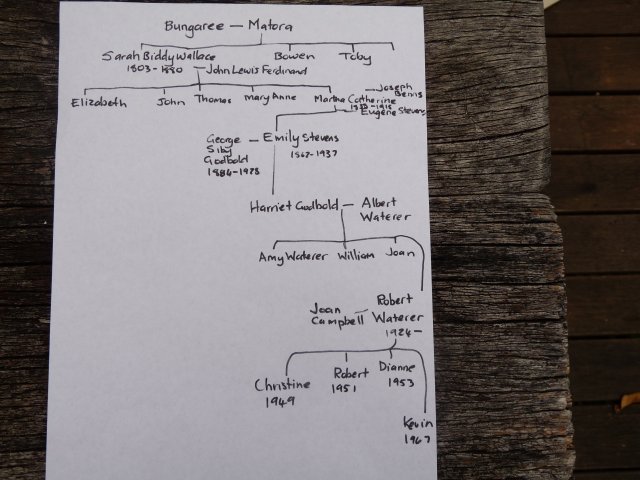 Bungaree — Matora
Sarah Biddy Wallace Bowen Toby
1803 - 1880 John Lewis Ferdinand
Elizabeth John Thomas Mary Anne Martha Catherine — Joseph Benns
Eugene Stevens
George Siby Godbold — Emily Stevens
1884-1928 1862-1937
Harriet Godbold — Albert Waterer
Amy Waterer William Joan
Joan Campbell — Robert Waterer
1924 —
Christine Robert Dianne
1949 1951 1953
Kevin
1967